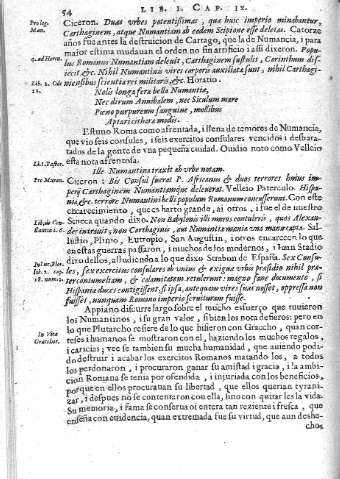 54 LIB. I. CAP. IX.
Ciceron. Duas vrbes potentissimas, quæ huic imperio minabantur,
Carthaginem, atque Numantiam ab eodem Scipione esse deletas. Catorze
años fue antes la destruicion de Cartago, que la de Numancia, i para
maior estima mudauan el orden no sin artificio i assi dixeron. Popu
lus Romanus Numantiam deleuit, Carthaginem sustulit, Corinthum dis
iecit &c. Nihil Numantinis vires corporis auxiliatæ sunt, nihil Carthagi
niensibus scientia rei militaris, &c. Horatio.
Nolis longa feræ bella Numantiæ,
Nec dirum Annibalem, nec Siculum mare
Pœno purpureum sanguine, mollibus
Aptari citharæ modis.
Estuuo Roma como afrentada, i llena de temores de Numancia,
que vio seis consules, i seis exercitos consulares vencidos i desbara-
tados de la gente de vna pequeña ciudad. Ouidio noto como Velleio
esta nota afrentosa.
Ille Numantina traxit ab vrbe notam.
Ciceron: Bis Consul fuerat P. Africanus & duos terrores huius im
perij Carthaginem Numantiamque deleuerat. Velleio Paterculo. Hispa
niæ, &c. terrore Numantini belli populum Romanum concusserunt. Con este
encarecimiento, que es harto grande, ai otros, i fue el de nuestro
Seneca quando dixo. Non Babylonem illi muros contulerit, quos Alexan-
der intrauit, non Carthaginis, aut Numantiæ mœnia vna manu capta. Sa-
lustio, Plinio, Eutropio, San Augustin, i otros encarecen lo que
en estas guerras passaron, i muchos de los modernos, i Ioan Stadio
dixo dellos, alludiendo a lo que dixo Strabon de España. Sex Consu-
les, sex exercitus consulares
Hispania duces contigissent, si ipsa, antequam vires suas nosset, oppressa non
fuisset, nunquam Romano imperio seruituram fuisse.
Appiano discurre largo sobre el mucho esfuerço que tuuieron
los Numantinos, i su gran valor, si bien les nota de fieros: pero en
lo que Plutarcho refiere de lo que hisieron con Graccho, quan cor-
teses i humanos se mostraron con el, haziendo les muchos regalos,
i caricias; vee se tambien su mucha humanidad, que auiendo podi-
do destruir i acabar los exercitos Romanos matando los, a todos
los perdonaron, i procuraron ganar su amistad i gracia, i la ambi-
cion Romana se tenia por ofendida, i injuriada con los beneficios,
porque en ellos procurauan su libertad, que ellos querian tyrani-
zar, i despues no se contentaron con ella, sino con quitar les la vida.
Su memoria, i fama se conserua oi entera tan rezienre i fresca, que
enseña con euidencia, quan extremada fue su virtud, que aun deshe-
chos